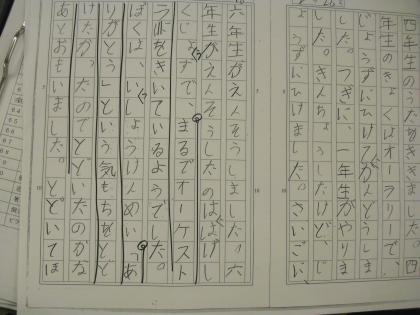 四年生のうたがききま
年生のきょくはオーラリーで、
じょうずにひけてかんどうしま
した。つぎに、一年生がやりま
した。きんちょうしたけど、じ
ょうずにひけました。さいごに、
六年生がえんそうしました。六
年生がえんそうしたのははくし
くじょうずで、まるでオーケスト
ラをきいているようでした。
ぼくは、いっしょうけんめい「あ
りがとう」という気もちをとど
けたかったのでとどいたのかな
あとおもいました。とどいてほ